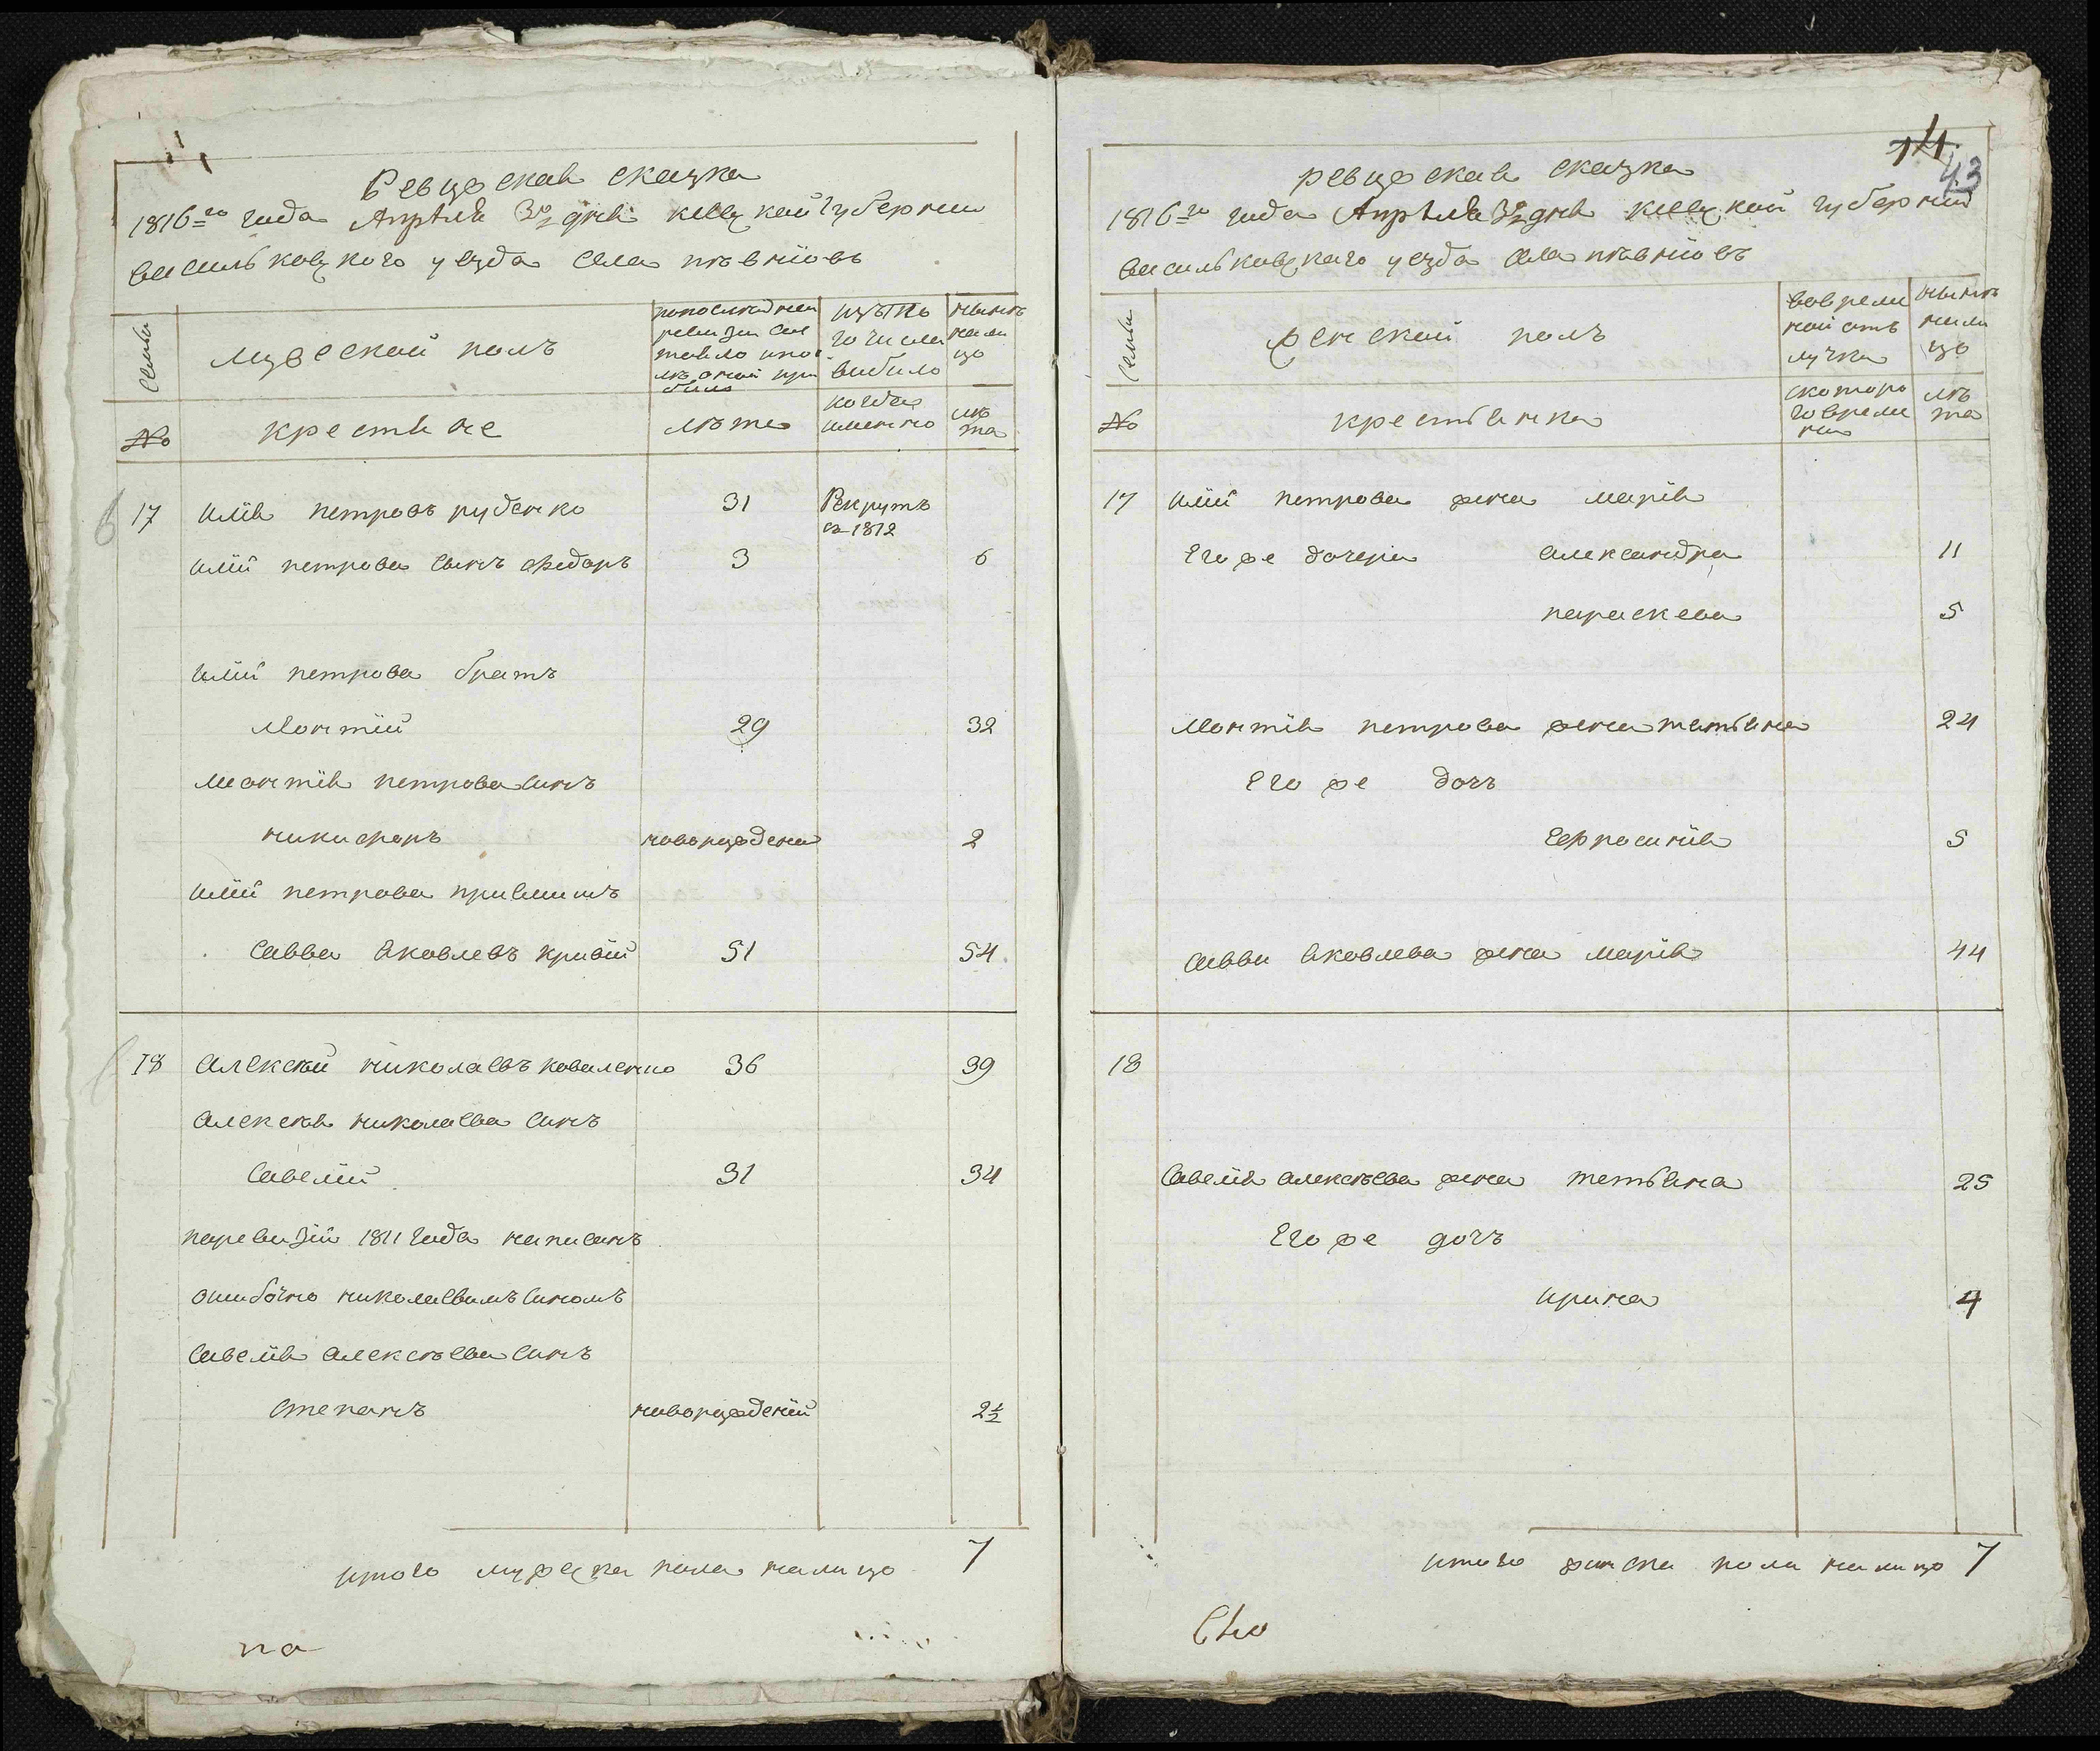 Ревизская сказка
1816го года Апреля 30 дня киевской губернии
васильковского уезда села пѣвнювъ
Семьи
мужеской полъ
по последней
ревизии сос
тояло и пос
лѣ оной при
было
изъ то
го числа
выбыло
нынѣ
нали
цо
№
крестьяне
лѣта
когда
именно
лѣ
та
17 илiя петровъ руденко 31 Рекрутъ
въ 1812
илiи петрова сынъ федоръ 3 6
илiи петрова братъ
Монтiй 29 32
Монтiя петрова синъ
никифоръ новорожденн 2
илiи петрова приймитъ
Савва яковлевъ кривiй 51 54
18 Алексѣй николаевъ коваленко 36 39
Алексѣя николаева синъ
Савелiй 31 34
поревизiи 1811 года написанъ
ошибочно николаевимъ синомъ
Савелiя алексѣева синъ
Степанъ новорожденiй 2½
итого мужеска пола налицо 7
по
14
43
ревизская сказка
1816го года Апрѣля 30 дня киевской губернiи
васильковского уезда села пѣвнiовъ
Семьи
женской полъ
вовремен
ной отъ
лучки
нынѣ
нали
цо
№
крестьянка
скоторо
го време
ни
лѣ
та
17 илiи петрова жена марiя
Его же дочери александра 11
параскева 5
Монтiя петрова жена татьяна 24
Его же дочъ
Евфросинiя 5
саввы яковлева жена марiя 44
18
Савелiя алексѣева жена татьяна 25
Его же дочъ
ирина 4
итого женска пола налицо 7
сѣю